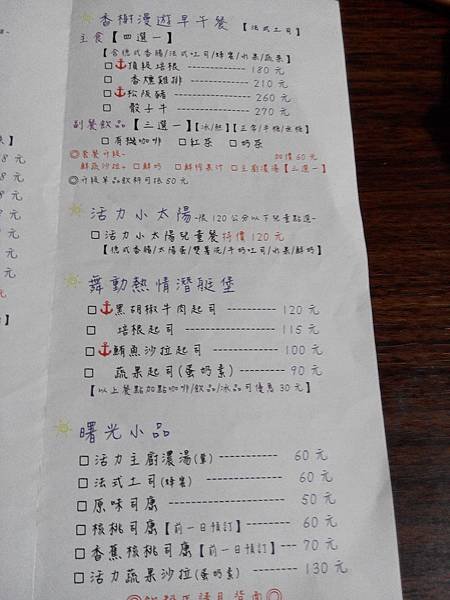 香樹漫遊早午餐 【法式土司】
主食【四選一】
【含德式香腸/法式吐司/蜂蜜/水果/蔬果】
□⚓頂級培根 ---------- 180元
□ 香燻雞排 ---------- 210元
□⚓松阪豬 ---------- 260元
□ 骰子牛 ---------- 270元
副餐飲品【三選一】【冰/熱】【三合/半糖/無糖】
□有機咖啡 □紅茶 □奶茶
◎套餐升級- 加價60元
鮮蔬沙拉+□鮮奶 □鮮榨果汁 □主廚濃湯【三選一】
◎升級單品飲料可限50元
活力小太陽-限120公分以下兒童點選-
□活力小太陽兒童餐特價120元
【德式香腸/太陽蛋/雙薯泥/牛奶吐司/水果/鮮奶】
舞動熱情潛艇堡
□⚓黑胡椒牛肉起司 ---------- 120元
□ 培根起司 ---------- 115元
□⚓鮪魚沙拉起司 ---------- 100元
□ 蔬果起司(蛋奶素) ---------- 90元
【以上餐點加點咖啡/飲品/冰品可優惠30元】
曙光小品
□活力主廚濃湯(葷) ---------- 60元
□法式土司(蜂蜜) ---------- 60元
□原味司康 ---------- 50元
□核桃司康【前一日預訂】-------- 60元
□香蕉核桃司康【前一日預訂】--- 70元
□活力蔬果沙拉(蛋奶素) -------- 130元